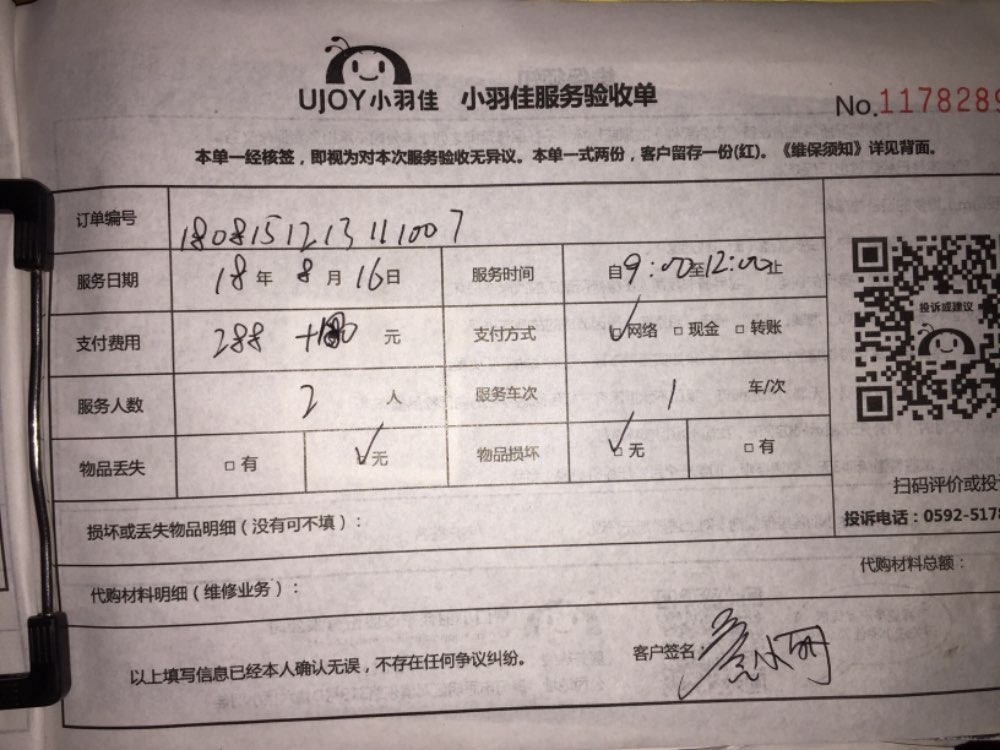 UJOY小羽佳 小羽佳服务验收单
No.1178289
本单一经核签，即视为对本次服务验收无异议。本单一式两份，客户留存一份(红)。《维保须知》详见背面。
订单编号 1808151213111007
服务日期 18年 8月16日 服务时间 自9:00至12:00止
支付费用 288 元 支付方式 ☑网络 □现金 □转账
服务人数 2 人 服务车次 1 车/次
物品丢失 □有 ☑无 物品损坏 ☑无 □有
投诉或建议
扫码评价或投
投诉电话：0592-5178
损坏或丢失物品明细（没有可不填）：
代购材料明细（维修业务）： 代购材料总额：
以上填写信息已经本人确认无误，不存在任何争议纠纷。 客户签名：